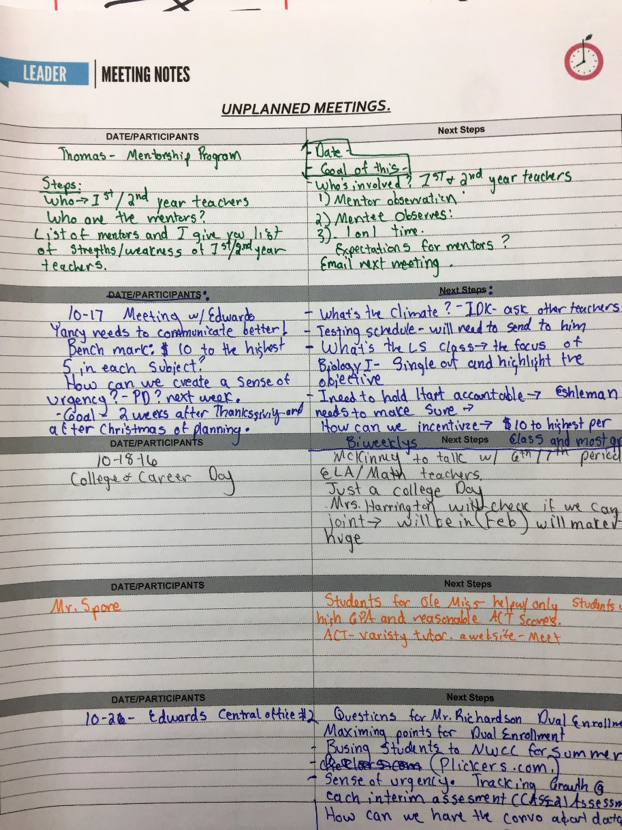 LEADER | MEETING NOTES
UNPLANNED MEETINGS.
DATE/PARTICIPANTS
Thomas- Mentorship Program
Steps:
Who → 1st / 2nd year teachers
Who are the mentors?
List of mentors and I give you list
of stregths/weakness of 1st/2nd year
teachers.
Next Steps
- Date -
- Goal of this -
- Who's involved? 1st & 2nd year teachers
1) Mentor observation
2) Mentee Observes:
3). 1 on 1 time.
Expectations for mentors?
Email next meeting.
DATE/PARTICIPANTS:
10-17 Meeting w/ Edwards
Yancy needs to communicate better!
Bench mark: $10 to the highest
5 in each subject?
How can we create a sense of
urgency? - PD? next week.
- Goal - 2 weeks after Thanksgiving and
after Christmas of planning.
Next Steps:
- What's the climate? - IDK- ask other teachers
- Testing schedule - will need to send to him
- What's the LS class → the focus of
Biology I- Single out and highlight the
objective
- I need to hold Hart accountable → Eshleman
needs to make sure →
How can we incentivize → $10 to highest per
Biweeklys Class and most
DATE/PARTICIPANTS
10-18-16
College & Career Day
Next Steps
McKinney to talk w/ 6th/7th period
ELA/Math teachers.
Just a college Day
Mrs. Harrington will check if we can
joint → will be in (Feb) will make
huge
DATE/PARTICIPANTS
Mr. Spore
Next Steps
Students for Ole Miss- only Students
high GPA and reasonable ACT Scores.
ACT- varisty tutor. a website - Meet
DATE/PARTICIPANTS
10-26- Edwards Central office #2
Next Steps
Questions for Mr. Richardson Dual Enrollme
Maximing points for Dual Enrollment
- Busing Students to NWCC for summer
- (Plickers.com)
- Sense of urgency. Tracking Growth @
each interim assesment (CASE 21 Assessm
How can we have the convo about data